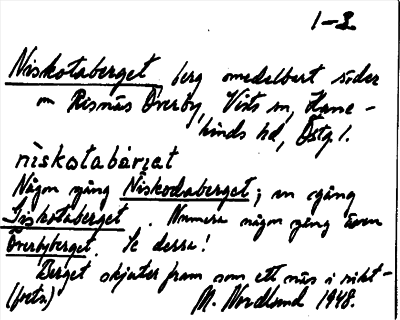 1-2.
Niskotaberget, berg omedelbart söder
om Risnäs Överby, Vists sn, Hane-
kinds hd, Östg. l.
niskotabärjat
Någon gång Niskodaberget; en gång
Siskotaberget. Numera någon gång även
Överbyberget. Se dessa!
Berget skjuter fram som ett näs i rikt-
(forts.) M. Nordlund 1948.